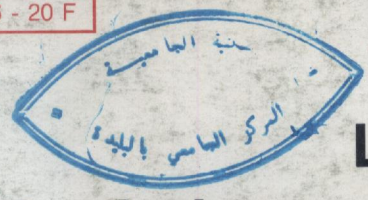 - 20 F
الجامعية
المركز الجامعي بالبليدة
L